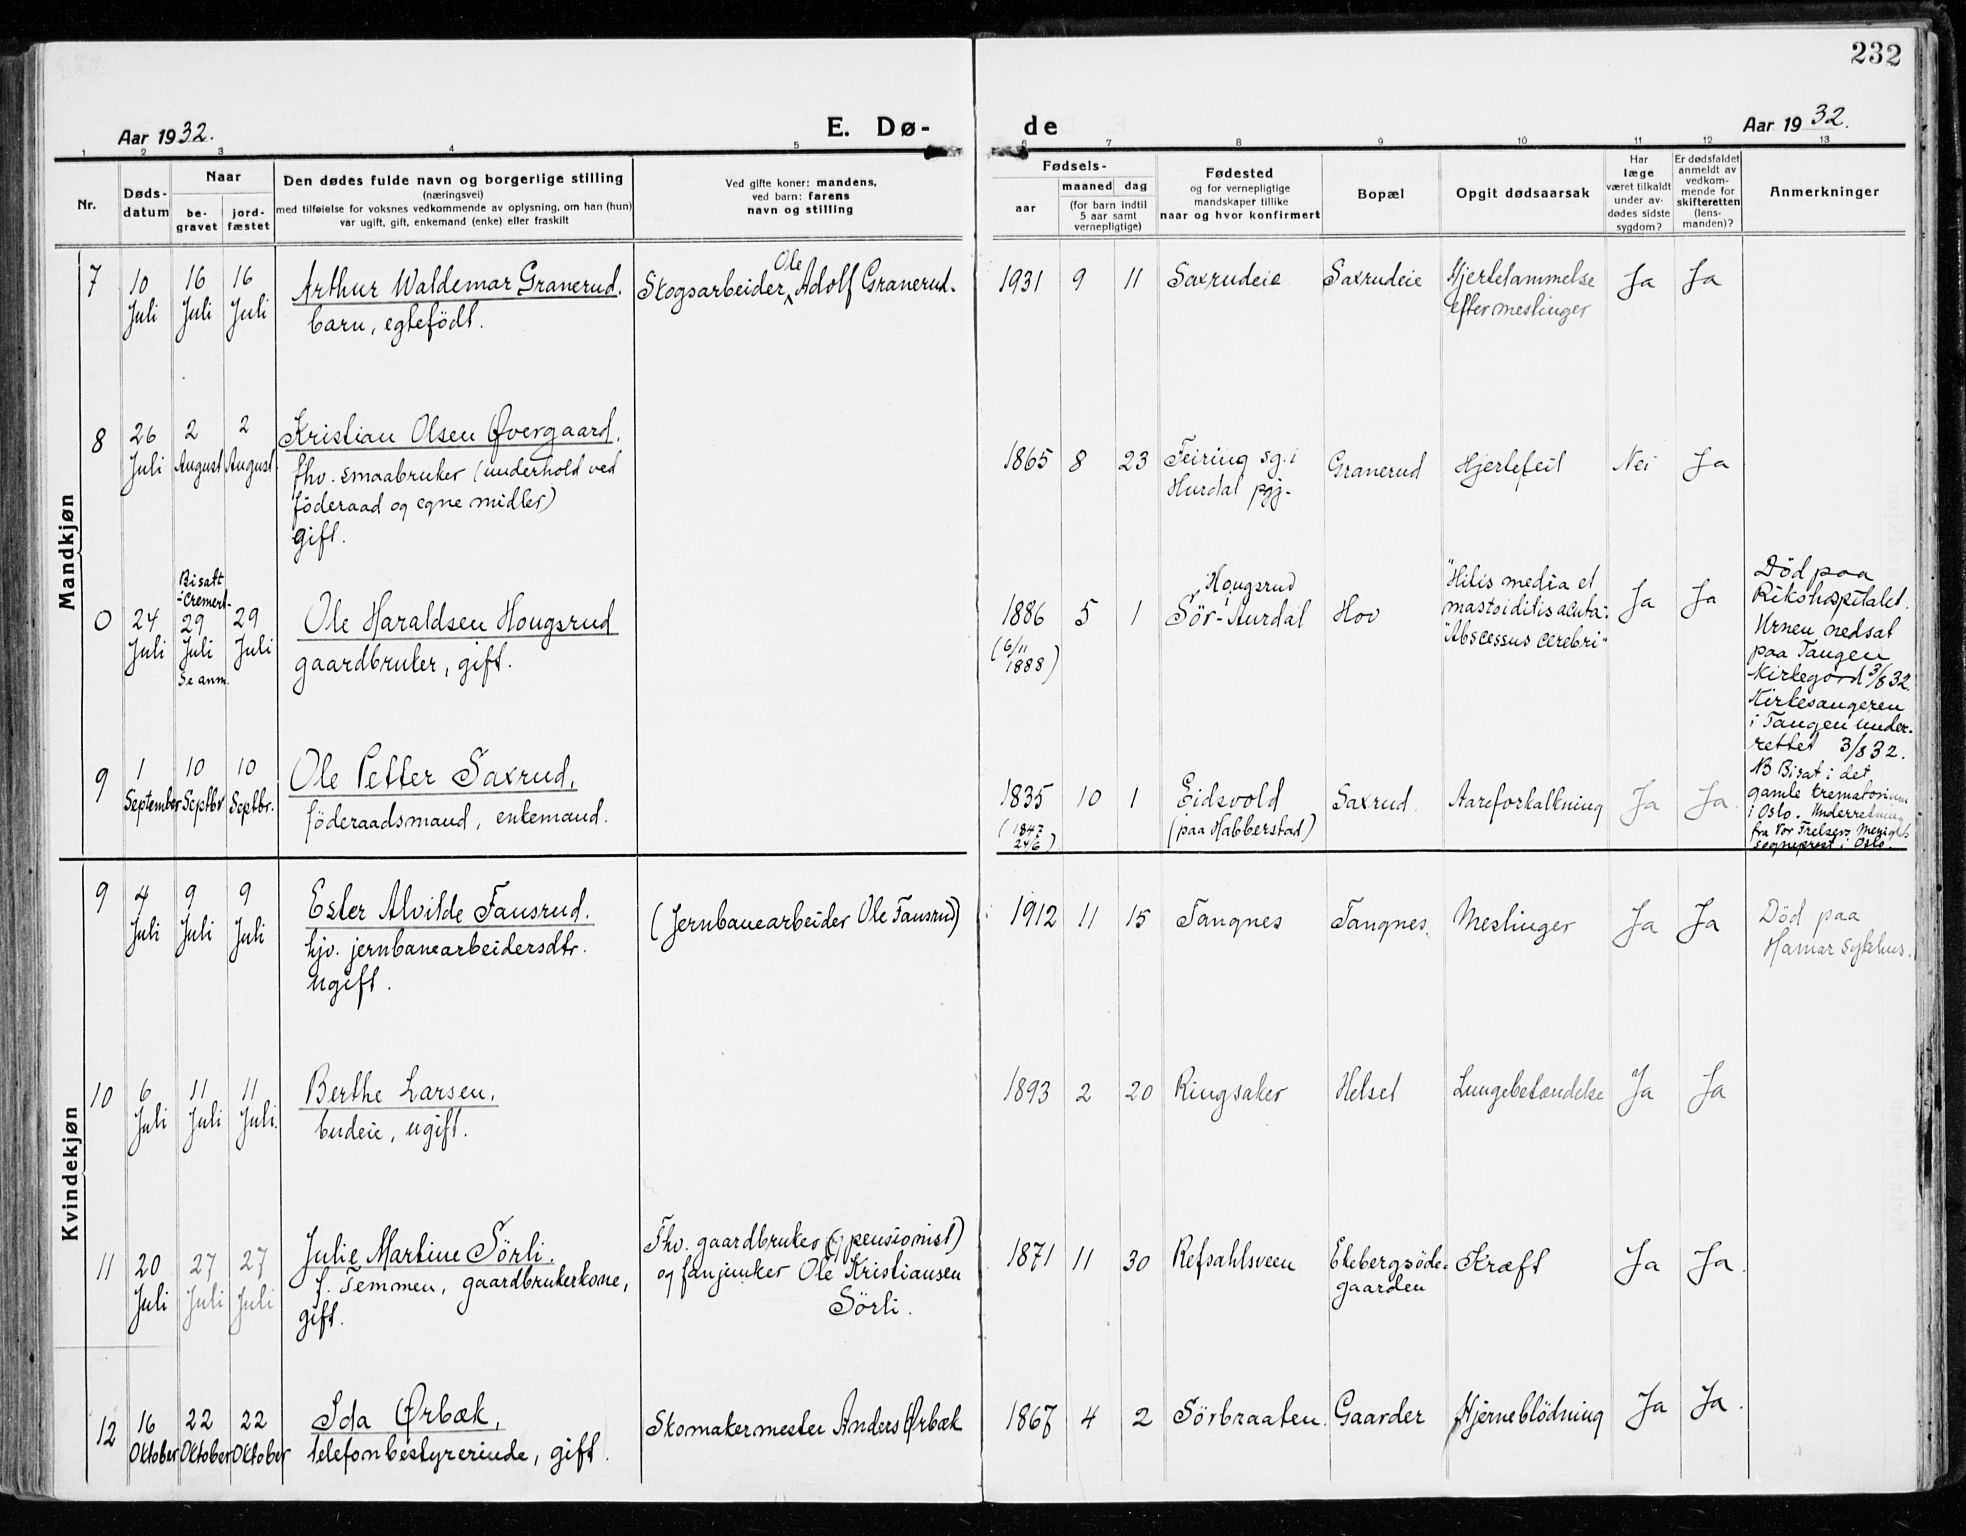 232
Aar 1932.
E. Dø-
de
Aar 1932.
1 2 3 4 5 6 7 8 9 10 11 12 13
Nr.
Døds-
datum
Naar
be-
gravet
jord-
fæstet
Den dødes fulde navn og borgerlige stilling
(næringsvei)
med tilføielse for voksnes vedkommende av oplysning, om han (hun)
var ugift, gift, enkemand (enke) eller fraskilt
Ved gifte koner: mandens,
ved barn: farens
navn og stilling
Fødsels-
aar
maaned dag
(for barn indtil
5 aar samt
vernepligtige)
Fødested
og for vernepligtige
mandskaper tillike
naar og hvor konfirmert
Bopæl
Opgit dødsaarsak
Har
læge
været tilkaldt
under av-
dødes sidste
sygdom?
Er dødsfaldet
anmeldt av
vedkom-
mende for
skifteretten
(lens-
manden)?
Anmerkninger
Mandkjøn
7
10
Juli
16
Juli
16
Juli
Arthur Waldemar Granerud.
barn, egtefödt.
Ole
Skogsarbeider, Adolf Granerud.
1931 9 11 Saxrudeie Saxrudeie
Hjertelammelse
efter meslinger
Ja Ja
8
26
Juli
2
August
2
August
Kristian Olsen Øvergaard.
fhv. smaabruker (underhold ved
föderaad og egne midler)
gift.
1865 8 23
Feiring sg. i
Hurdal pgj.
Granerud Hjertefeil Nei Ja
0
24
Juli
Bisatt
-cremert-
29
Juli
Se anm.
29
Juli
Ole Haraldsen Hougsrud
gaardbruker, gift.
1886 5 1
(6/11
1888)
Hougsrud
Sör-Aurdal
Hov
"Hitis media et
mastoiditis acuta.
"Abscessus cerebri"
Ja Ja
Död paa
Rikshospitalet.
Urnen nedsat
paa Tangen
Kirkegård 3/8 32.
Kirkesangeren
i Tangen under-
rettet 3/8 32.
NB Bisat i det
gamle krematorium
i Oslo. Underretning
fra Vor Frelsers Menighets
sogneprest i Oslo.
9
1
September
10
Septbr
10
Septbr.
Ole Petter Saxrud,
föderaadsmand, enkemand.
1835 10 1
(1847
24/6)
Eidsvold
(paa Habberstad)
Saxrud. Aareforkalkning Ja Ja.
Kvindekjøn
9
4
Juli
9
Juli
9
Juli
Ester Alvilde Fausrud.
hjv. jernbanearbeidersdtr.
ugift.
(Jernbanearbeider Ole Fausrud)
1912 11 15 Tangnes Tangnes. Meslinger Ja Ja
Död paa
Hamar sykehus.
10
6
Juli
11
Juli
11
Juli.
Berthe Larsen,
budeie, ugift.
1893 2 20 Ringsaker Helset Lungebetændelse Ja Ja
11
20
Juli
27
Juli
27
Juli
Julie Martine Sörli.
f. Temmen, gaardbrukerkone,
gift.
Fhv. gaardbruker (pensionist)
og fanjunker Ole Kristiansen
Sörli.
1871 11 30 Refsahlsveen
Ekebergsöde-
gaarden
Kræft Ja Ja.
12
16
Oktober
22
Oktober
22
Oktober
Ida Ørbæk,
telefonbestyrerinde, gift.
Skomakermester Anders Ørbæk
1867 4 2 Sörbraaten. Gaarder Hjerneblödning Ja Ja.